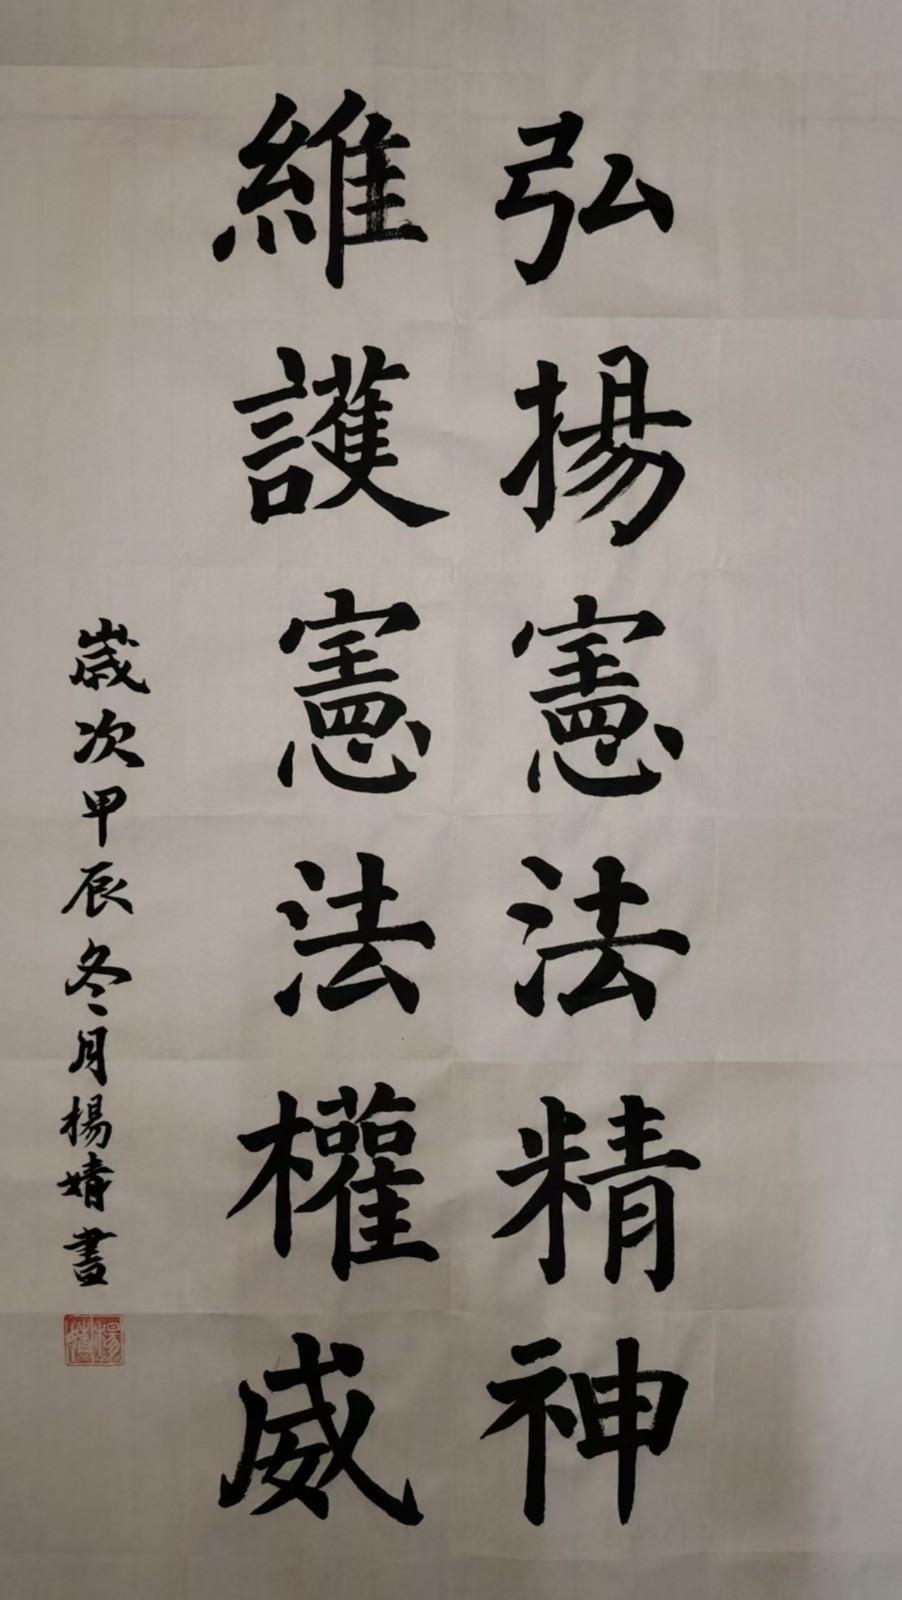 弘揚憲法精神
維護憲法權威
歲次甲辰冬月楊婧書
楊婧